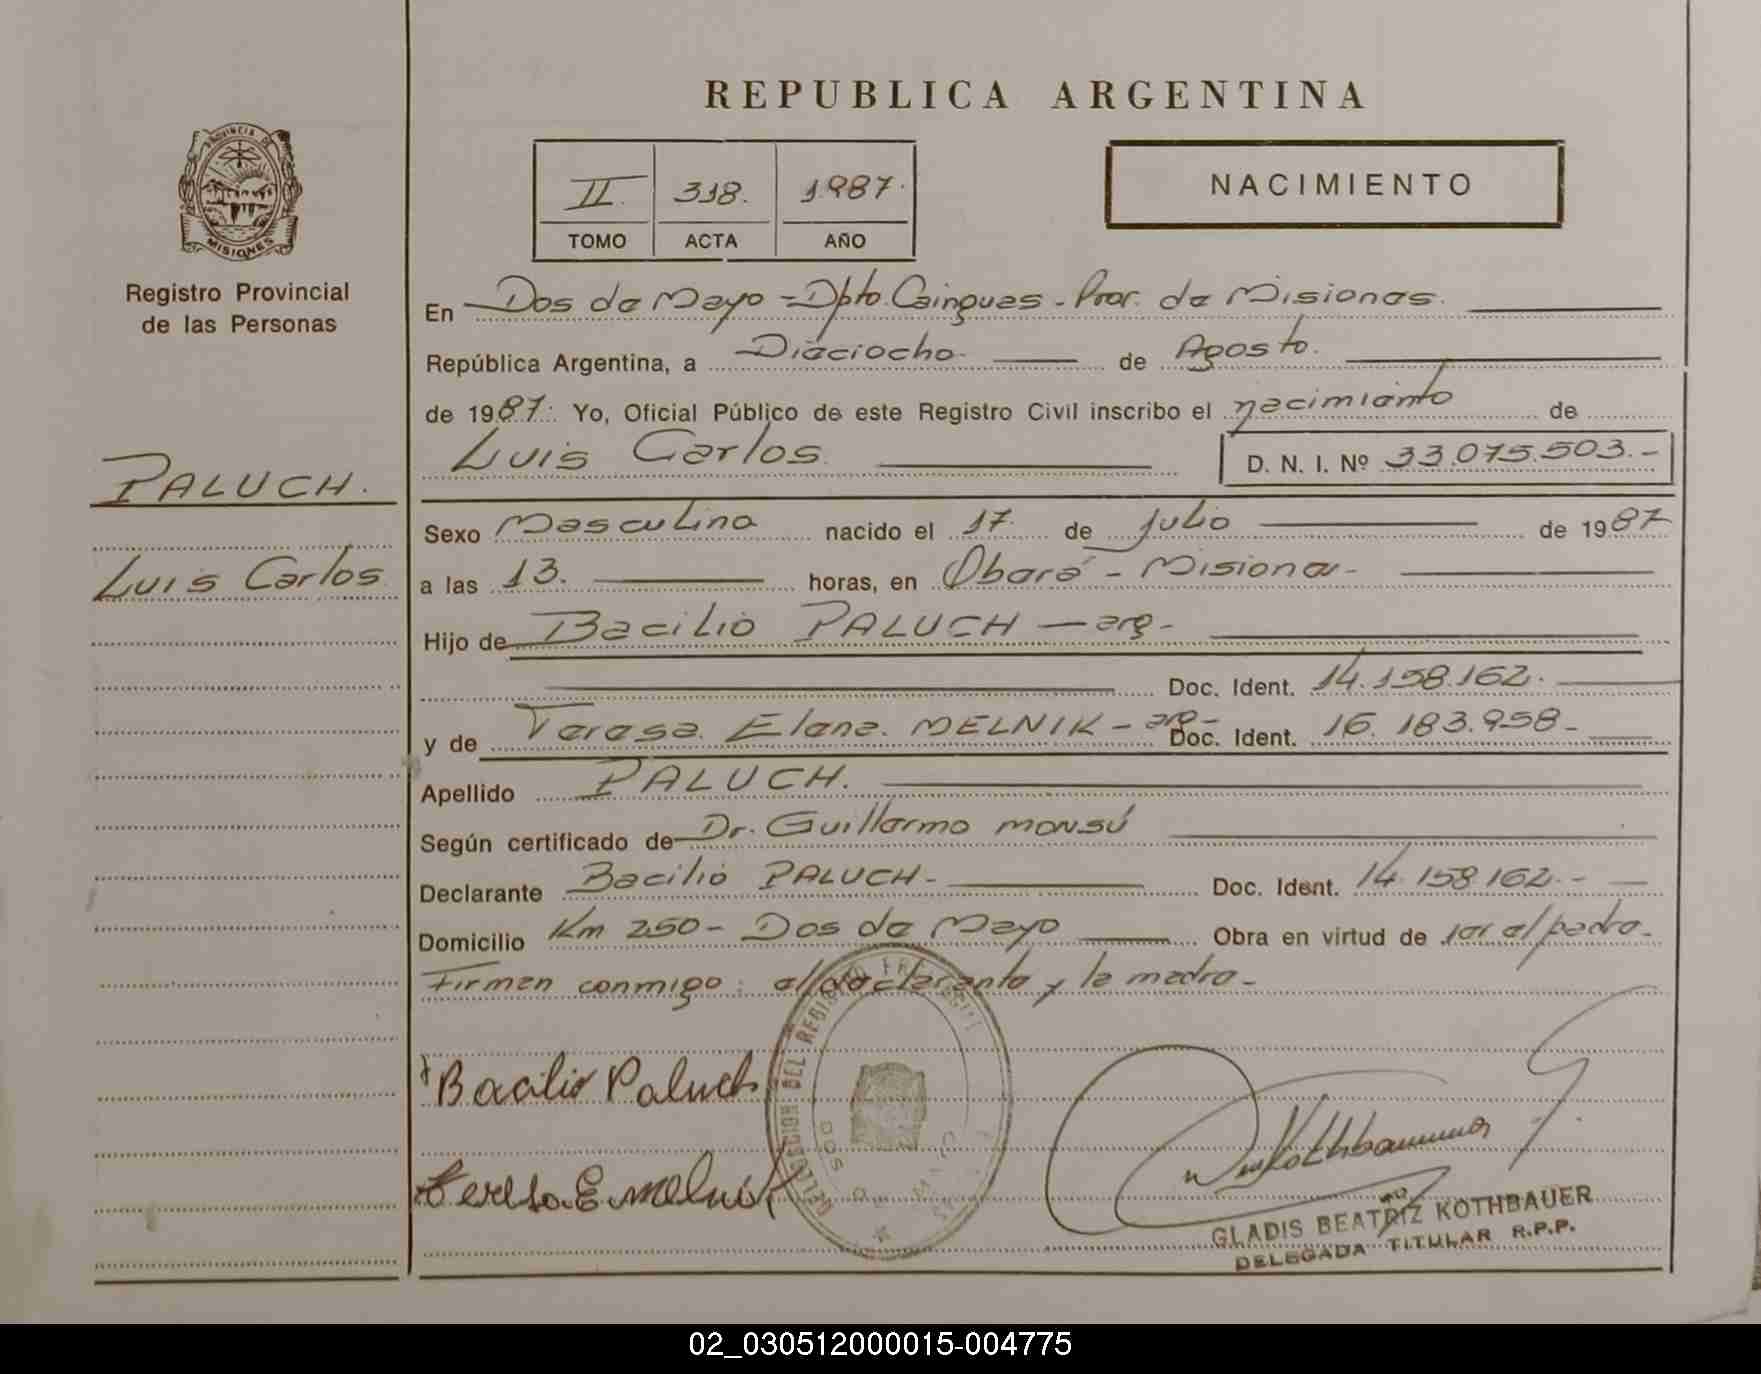 REPUBLICA ARGENTINA
PROVINCIA DE
MISIONES
Registro Provincial
de las Personas
II. 318. 1987.
TOMO ACTA AÑO
NACIMIENTO
En Dos de Mayo - Dpto. Cainguas - Prov. de Misiones.
República Argentina, a Dieciocho. de Agosto.
de 1987. Yo, Oficial Público de este Registro Civil inscribo el nacimiento de
Luis Carlos. D. N. I. Nº 33.075.503.-
PALUCH.
Luis Carlos
Sexo Masculino nacido el 17. de Julio de 1987
a las 13. horas, en Oberá - Misiones -
Hijo de Bacilio PALUCH — arg -
Doc. Ident. 14.158.162.
y de Teresa Elena MELNIK - arg - Doc. Ident. 16.183.958 -
Apellido PALUCH.
Según certificado de Dr. Guillermo Monsú
Declarante Bacilio PALUCH - Doc. Ident. 14.158.162 -
Domicilio Km 250 - Dos de Mayo Obra en virtud de ser el padre.
Firman conmigo: el declarante y la madre -
Bacilio Paluch
Teresa E. Melnik
DELEGACION DEL REGISTRO
DOS DE MAYO
Kothbauer
GLADIS BEATRIZ KOTHBAUER
DELEGADA TITULAR R.P.P.
02_030512000015-004775